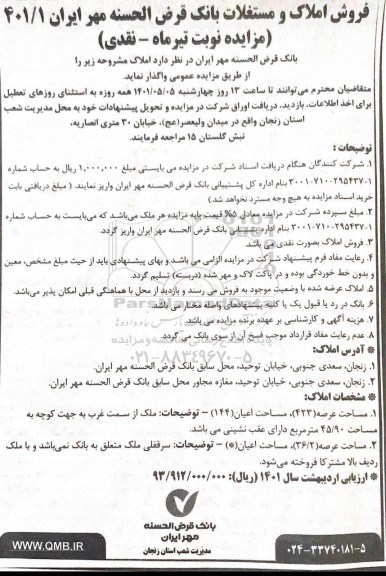 فروش املاک و مستغلات بانک قرض الحسنه مهر ایران ۴۰۱/۱
(مزایده نوبت تیرماه - نقدی)
بانک قرض الحسنه مهر ایران در نظر دارد املاک مشروحه زیر را
از طریق مزایده عمومی واگذار نماید.
متقاضیان محترم می‌توانند تا ساعت ۱۳ روز چهارشنبه ۱۴۰۱/۰۵/۰۵ همه روزه به استثنای روزهای تعطیل
برای اخذ اطلاعات، بازدید، دریافت اوراق شرکت در مزایده و تحویل پیشنهادات خود به محل مدیریت شعب
استان زنجان واقع در میدان ولیعصر(عج)، خیابان ۳۰ متری انصاریه،
نبش گلستان ۱۵ مراجعه فرمایند.
توضیحات :
۱. شرکت کنندگان هنگام دریافت اسناد شرکت در مزایده می بایستی مبلغ ۱,۰۰۰,۰۰۰ ریال به حساب شماره
۱-۲۹۵۴۳۷-۷۱۰-۳۰۰۱ بنام اداره کل پشتیبانی بانک قرض الحسنه مهر ایران واریز نمایند. ( مبلغ دریافتی بابت
خرید اسناد مزایده به هیچ وجه مسترد نخواهد شد.)
۲. مبلغ سپرده شرکت در مزایده معادل ۵% قیمت پایه مزایده هر ملک می‌باشد که می‌بایست به حساب شماره
۱-۲۹۵۴۳۷-۷۱۰-۳۰۰۱ بنام اداره پشتیبانی بانک قرض الحسنه مهر ایران واریز گردد.
۳. فروش املاک بصورت نقدی می باشد.
۴. رعایت مفاد فرم پیشنهاد شرکت در مزایده الزامی می باشد و بهای پیشنهادی باید از حیث مبلغ مشخص، معین
و بدون خط خوردگی بوده و در پاکت لاک و مهر شده (دربسته) تسلیم گردد.
۵. املاک عرضه شده با وضعیت موجود به فروش می رسند و بازدید از محل با هماهنگی قبلی امکان پذیر می‌باشد.
۶. بانک در رد یا قبول یک یا کلیه پیشنهادهای واصله مختار می باشد.
۷. هزینه آگهی و کارشناسی بر عهده برنده مزایده می باشد.
۸. عدم رعایت مفاد قرارداد موجب فسخ آن از سوی بانک می گردد.
* آدرس املاک:
۱. زنجان، سعدی جنوبی، خیابان توحید، محل سابق بانک قرض الحسنه مهر ایران.
۲. زنجان، سعدی جنوبی، خیابان توحید، مغازه مجاور محل سابق بانک قرض الحسنه مهر ایران.
* مشخصات املاک:
۱. مساحت عرصه(۴۲۳)، مساحت اعیان(۱۴۴) - توضیحات: ملک از سمت غرب به جهت کوچه به
مساحت ۴۵/۹۰ مترمربع دارای عقب نشینی می باشد.
۲. مساحت عرصه(۳۶/۲)، مساحت اعیان(*) - توضیحات: سرقفلی ملک متعلق به بانک نمی‌باشد و با ملک
ردیف بالا مشترکا فروخته می‌شود.
* ارزیابی اردیبهشت سال ۱۴۰۱ (ریال): ۹۳/۹۱۲/۰۰۰/۰۰۰
بانک قرض الحسنه
مهر ایران
مدیریت شعب استان زنجان
WWW.QMB.IR
۰۲۴-۳۳۷۴۰۱۸۱-۵
۰۲۱-۸۸۳۴۹۶۷۰-۵